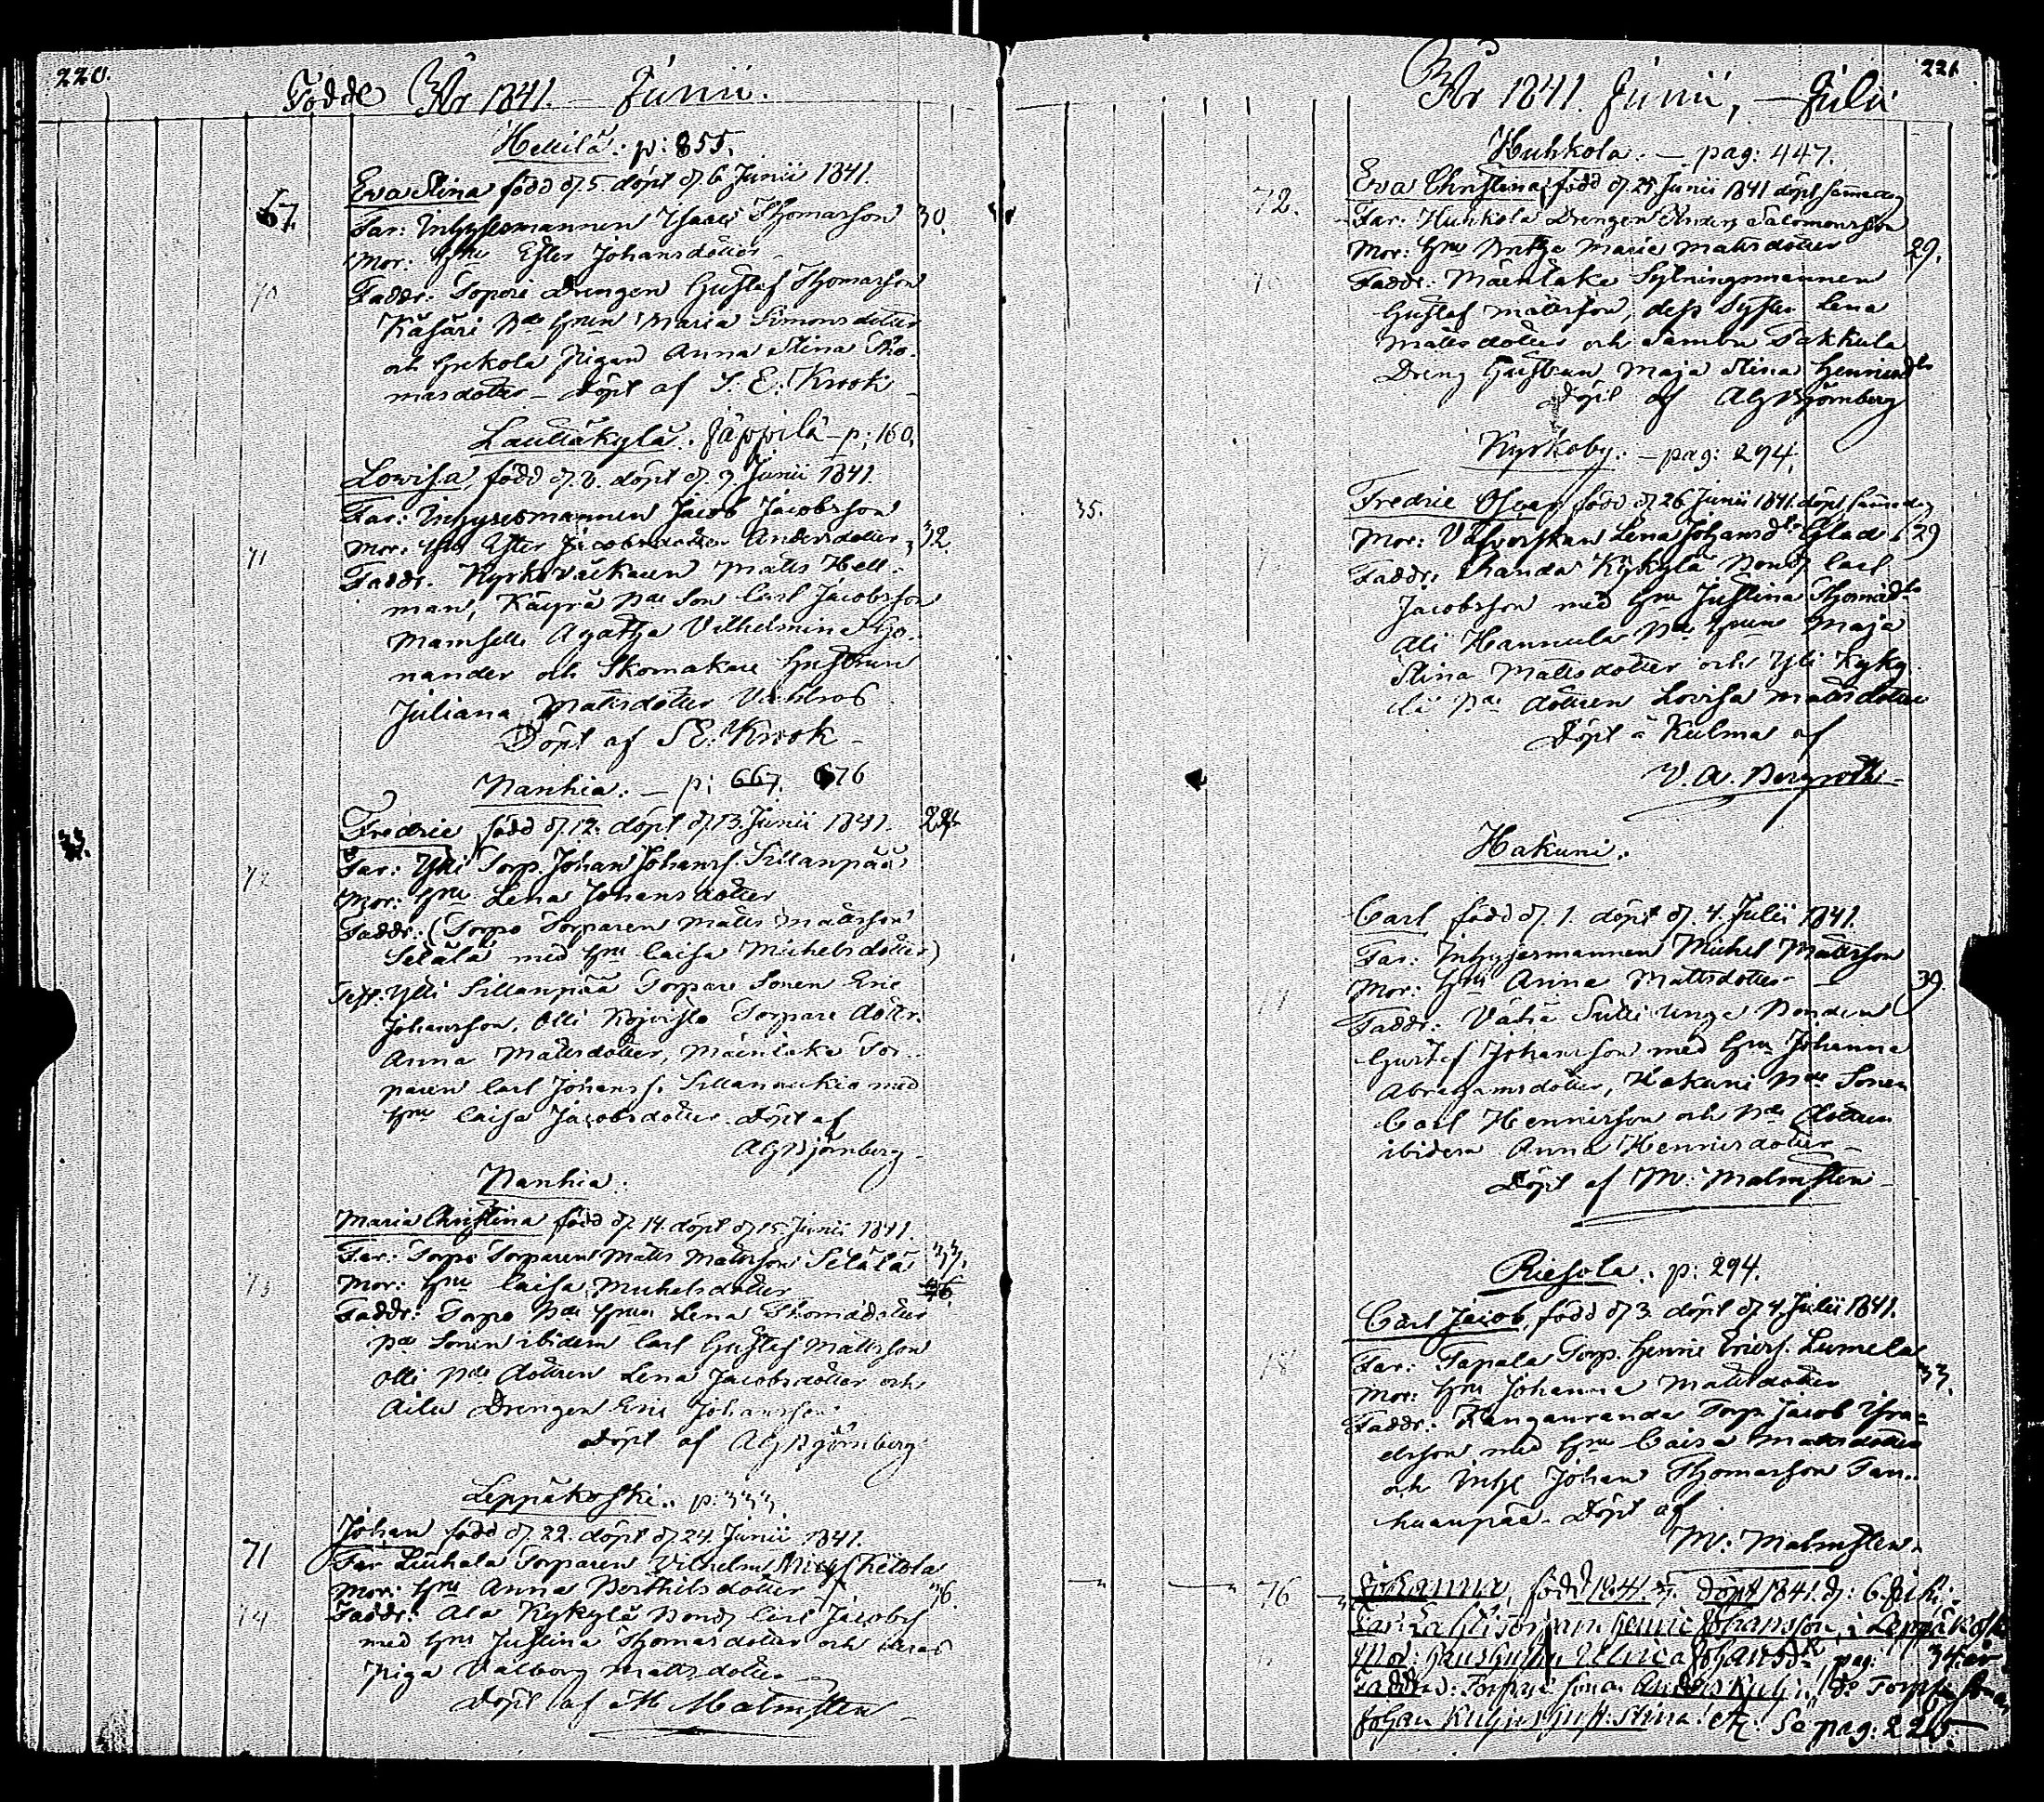 220.
Födde År 1841. – Junii.
Hellilä. p: 855.
67.
Eva Stina född d. 5 döpt d. 6 Junii 1841.
Far: Inhysesmannen Isaac Thomasson
30.
Mor: Hu Ester Johansdotter
70
Faddr. Sopori Drengen Gustaf Thomasson
Käsäri Bde Hrun Maria Simonsdotter
och Pigan Anna Stina Tho-
masdotter – Döpt af S. E. Krook
Lauttakylä. Jäppilä – p: 160.
Lovisa, född d. 8. döpt d. 9. Junii 1841.
Far: Inhysesmannen Jacob Jacobsson
Mor: Hu Ester Andersdotter
32.
71
Faddr. Kyrkoväktaren Matts Hell-
man, Käyrä Bde Son Carl Jacobsson
Mamsell Agatha Vilhelmina
nander och Skomakare Hustrun
Juliana Mattsdotter
Döpt af S E. Krook –
Nanhia. – p: 667. 676
33.
Fredric född d. 12. döpt d. 13. Junii 1841.
24
Far: Yli Torp. Johan Johanss. Sillanpää
72
Mor: Hu Lena Johansdotter
Faddr. (Torpo Torparen Matts Mattsson
Setälä med Hu Caisa Michelsdotter)
Ylli Sillanpää Torpare Sonen Eric
Johansson, Olli Kojvisto Torpare dotter.
Anna Mattsdotter, Mäenlaka Tor-
paren Carl Johanss. med
Hu Caisa Jacobsdotter. Döpt af
AG Björnberg
Nanhia.
Maria Christina född d. 14. döpt d. 15. Junii 1841.
Far: Torpo Torparen Matts Mattsson Setälä
33.
73
Mor: Hu Caisa Michelsdotter
Faddr: Torpo Bde Hrun Lena Thomasdotter
Bde Sonen ibidem Carl Gustaf Mattsson
Olli Bde dottren Lena Jacobsdotter och
Aila Drengen Eric Johansson
Döpt af AG Björnberg
Leppäkoski. p: 333
Johan född d. 22. döpt d. 24. Junii 1841.
71
Far Liuhala Torparen Vilhelm Ketola
Mor: Hu Anna Berthilsdotter
36.
74
Faddr: Ala Kykylä Bond Carl Jacobss
med Hu Justina Thomasdotter och
Piga Valborg Mattsdotter
Döpt af M Malmsten
221
År 1841. Junii, – Julii
Huhkola. – pag: 447.
72.
Eva Christina, född d. 25 Junii 1841 döpt samma dag
Far: Huhkola Drengen Anders Salomonsson
Mor: Hu Britha Maria Mattsdotter
29.
Faddr: Mäenlaka Sytningsmannen
Gustaf Mattsson, dess Syster Lena
Mattsdotter och Sambu Takkula
Dreng Hustrun Maja Stina Henricsdtr
Döpt af AG Björnberg
Kyrkoby. – pag: 294.
35.
Fredric Oscar född d. 26 Junii 1841. döpt samma dag
Mor: Väfverskan Lena Johansdtr Glad
29
Faddr: Randa Kykylä Bond Carl
Jacobsson med Hu Justina Thomasdtr
Ali Hannula Bde Hrun Maja
Stina Mattsdotter och Yli Kyky-
lä Bde dottren Lovisa Mattsdotter
Döpt å Kulma af
V. A. Bergroth
Hakuni.
Carl född d. 1. döpt d. 4. Julii 1841.
Far: Inhysesmannen Michel Mattsson
Mor: Hu Anna Mattsdotter –
39.
Faddr. Vähä Sulli unge Bonden
Gustaf Johansson med Hu Johanna
Abrahamsdotter, Hakuni Bde Sonen
Carl Henricsson och Bde dottren
ibidem Anna Henricsdotter –
Döpt af M. Malmsten
Riesola. p: 294.
Carl Jacob, född d. 3. döpt d. 4 Julii 1841.
Far: Tapala Torp. Henric Ericss. Lumela
Mor: Hu Johanna Mattsdotter
33.
Faddr: Kangauranda Torp. Jacob Isra-
elsson med Hu Caisa Mattsdotter
och Inh Johan Thomasson Tan-
huanpää. Döpt af
M. Malmsten.
76
Johanna, född 1841 Döpt 1841. d: 6. Juli.
Far: Henric Johansson, i Leppäkoski
Mor: Hans Hustru Ulrica Johansdr pag: 34 år
Faddr:
Johan Stina. etc: Se pag: 225.